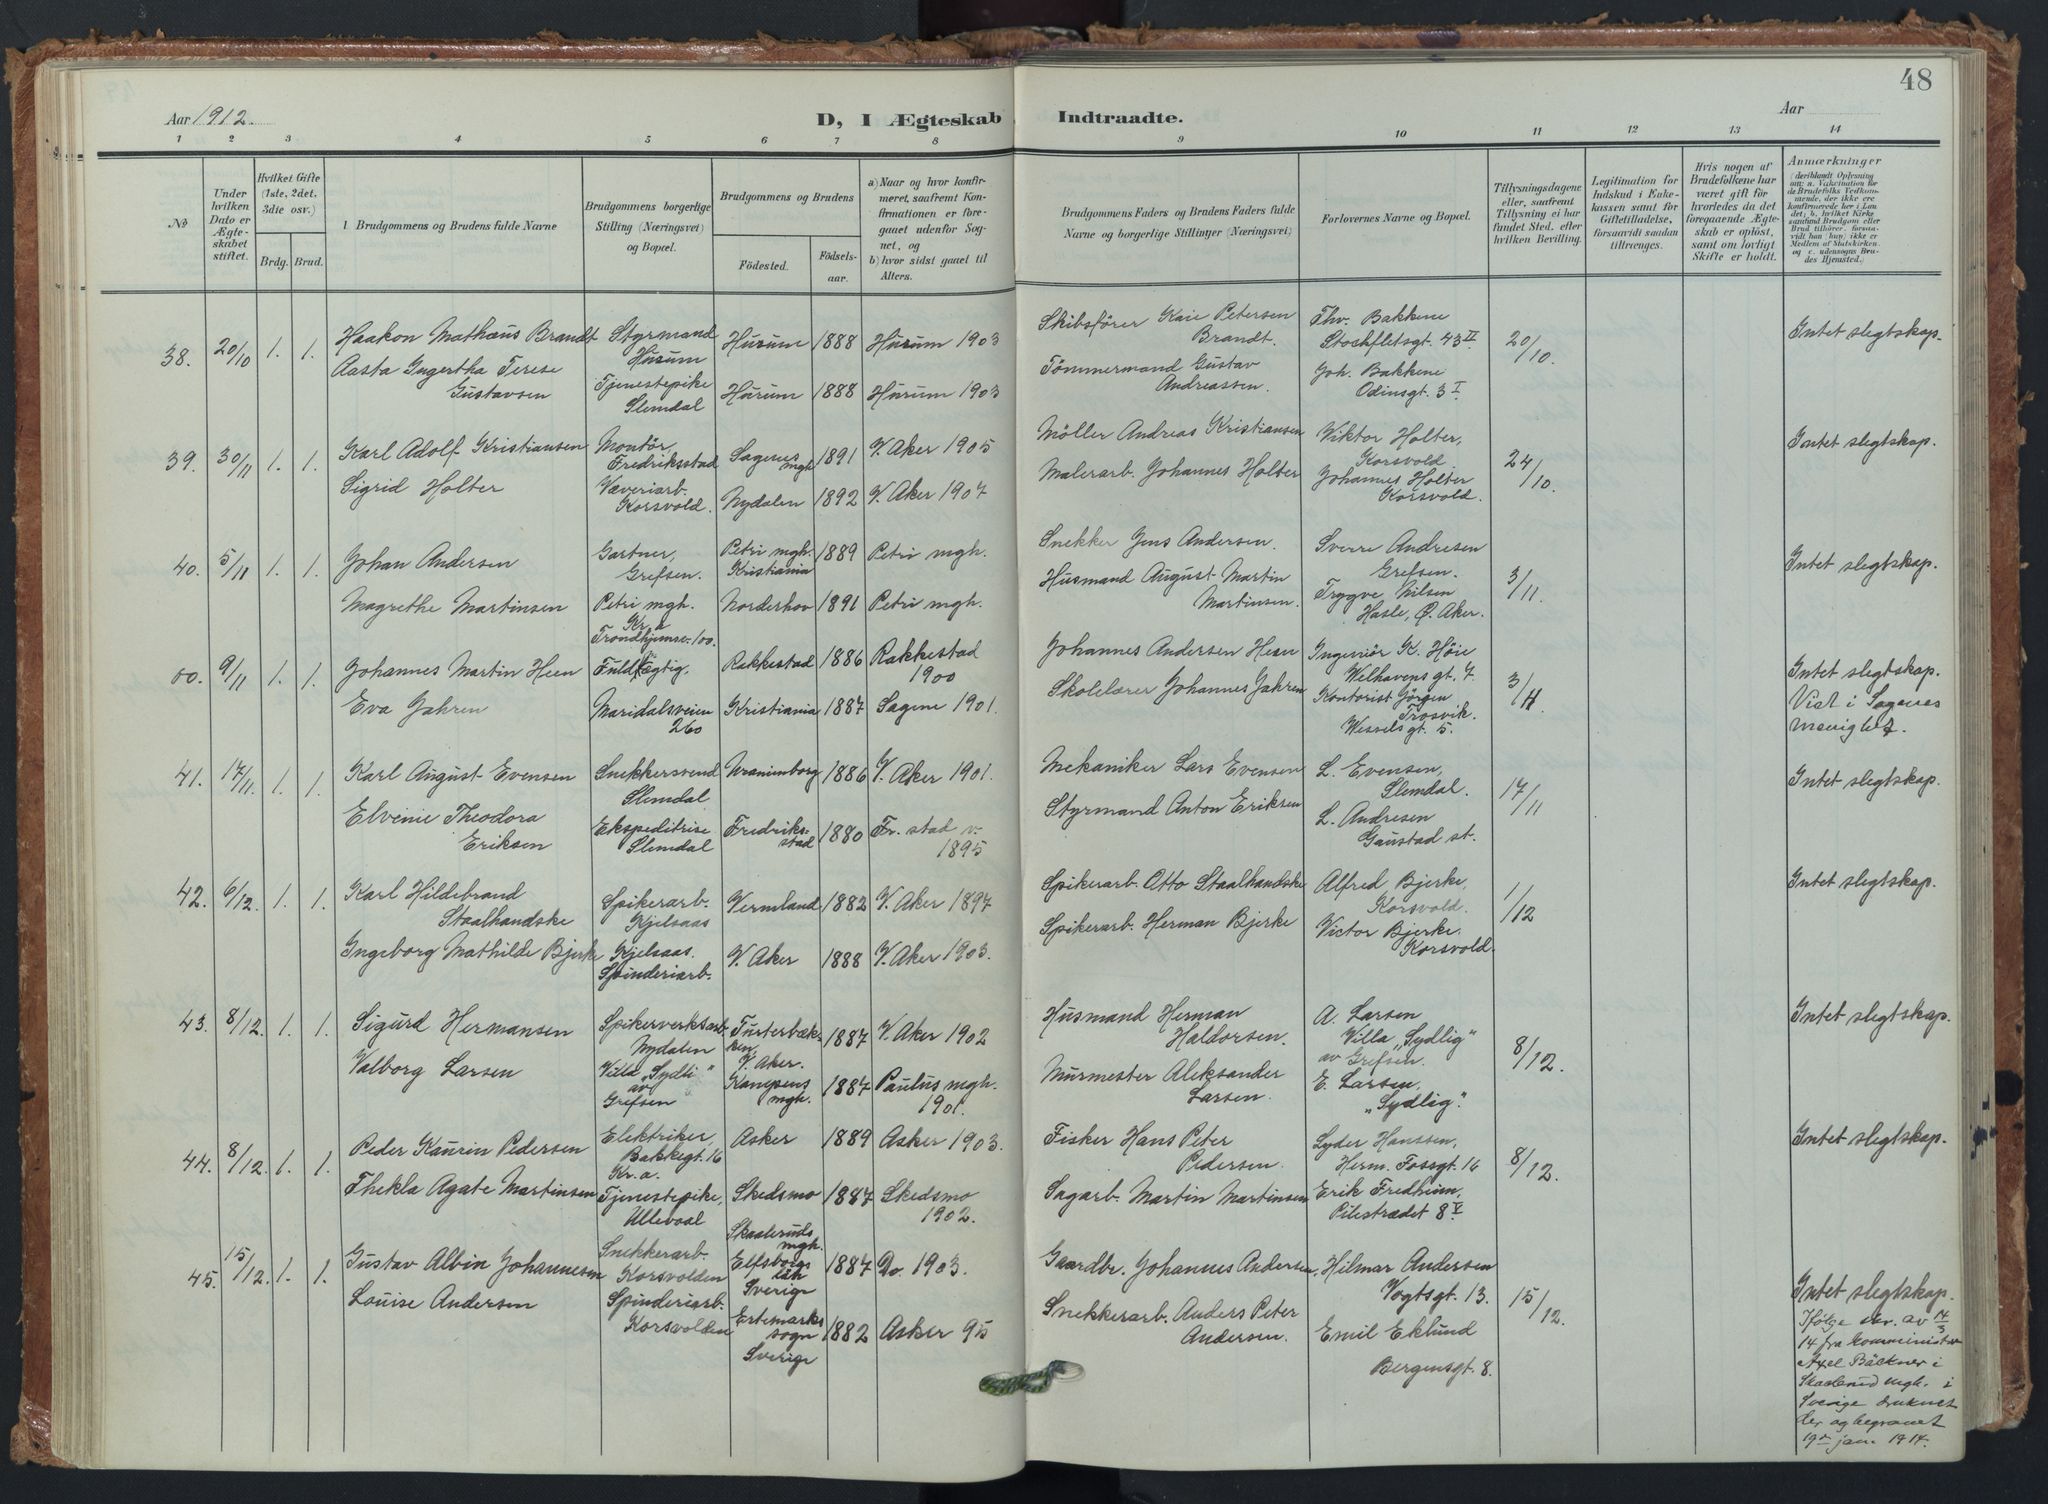 48
Aar 1912.
D, I Ægteskab Indtraadte.
Aar
1 2 3 4 5 6 7 8 9 10 11 12 13 14
No
Under hvilken Dato er Ægteskabet stiftet.
Hvilket Gifte (1ste, 2det, 3die osv.)
Brdg. Brud.
1 Brudgommens og Brudens fulde Navne
Brudgommens borgerlige Stilling (Næringsvei) og Bopæl.
Brudgommens og Brudens
Födested. Födselsaar.
a) Naar og hvor konfirmeret, saafremt Konfirmationen er foregaaet udenfor Sognet, og
b) hvor sidst gaaet til Alters.
Brudgommens Faders og Brudens Faders fulde Navne og borgerlige Stillinger (Næringsvei)
Forlovernes Navne og Bopæl.
Tillysningsdagene eller, saafremt Tillysning ei har fundet Sted, efter hvilken Bevilling.
Legitimation for Indskud i Enkekassen samt for Giftetilladelse, forsaavidt saadan tiltrænges.
Hvis nogen af Brudefolkene har været gift för hvorledes da det foregaaende Ægteskab er oplöst, samt om lovligt Skifte er holdt.
Anmærkninger
(deriblandt Oplysning om: a. Vakcination for de Brudefolks Vedkommende, der ikke ere konfirmerede her i Landet; b. hvilket Kirkesamfund Brudgom eller Brud tilhörer, forsaavidt han (hun) ikke er Medlem af Statskirken, og c. udensogns Brudes Hjemsted.)
38. 20/10 1. 1. Haakon Mathæus Brandt Styrmand Hurum Hurum 1888 Hurum 1903 Skibsförer Kaie Petersen Brandt. Thv. Bakkene Stochfletsgt. 43 II 20/10. Intet slegtskap.
Aasta Ingertha Terese Gustavsen Tjenestepike Slemdal Hurum 1888 Hurum 1903 Tömmermand Gustav Andreassen. Joh. Bakkene Odinsgt. 3 I
39. 30/11 1. 1. Karl Adolf Kristiansen Montör, Fredriksstad Sagenes mgh 1891 V. Aker 1905 Möller Andreas Kristiansen Viktor Holter, Korsvold 24/10. Intet slegtskap.
Sigrid Holter Væveriarb. Korsvold. Nydalen 1892 V. Aker 1907 Malerarb. Johannes Holter Johannes Holter Korsvold.
40. 5/11 1. 1. Johan Andersen Gartner, Grefsen. Petri mgh. Kristiania 1889 Petri mgh. Snekker Jens Andersen. Sverre Andresen Grefsen. 3/11. Intet slegtskap.
Magrethe Martinsen Petri mgh. Kr.a Norderhov 1891 Petri mgh. Husmand August Martin Martinsen. Trygve Nilsen Hasle, Ø. Aker.
00. 9/11 1. 1. Johannes Martin Heen Trondhjemsv. 100. Fuldmægtig Rakkestad 1886 Rakkestad 1900 Johannes Andersen Heen Ingeniör K. Höie Welhavens gt. 7. 3/11. Intet slegtskap. Viet i Sagenes menighet.
Eva Jahren Maridalsveien 260 Kristiania 1887 Sagene 1901. Skolelærer Johannes Jahren Kontorist Jörgen Trosvik. Wessels gt. 5.
41. 17/11. 1. 1. Karl August Evensen Snekkersvend Slemdal. Uranienborg 1886 V. Aker 1901. Mekaniker Lars Evensen L. Evensen, Slemdal. 17/11 Intet slegtskap.
Elvenie Theodora Eriksen Ekspeditrise Slemdal Fredriksstad 1880 Fr. stad v. 1895 Styrmand Anton Eriksen L. Andresen Gaustad st.
42. 6/12. 1. 1. Karl Hildebrand Staalhandske Spikerarb. Kjelsaas Vermland 1882 V. Aker 1897 Spikerarb. Otto Staalhandske Alfred Bjerke, Korsvold. 1/12 Intet slegtskap.
Ingeborg Mathilde Bjerke Kjelsaas. Spinderiarb. V. Aker 1888 V. Aker 1903. Spikerarb. Herman Bjerke Victor Bjerke. Korsvold.
43. 8/12. 1. 1. Sigurd Hermansen Spikerverksarb. Nydalen Turterbækken V. Aker. 1887 V. Aker 1902 Husmand Herman Haldorsen. A. Larsen Villa „Sydlig" av Grefsen. 8/12. Intet slegtskap.
Valborg Larsen Villa „Sydli" av Grefsen Kampens mgh. 1887 Paulus mgh. 1901. Murmester Aleksander Larsen. E. Larsen, „Sydlig".
44. 8/12. 1. 1. Peder Kaurin Pedersen Elektriker, Bakkegt. 16 Kr.a. Asker 1889 Asker 1903. Fisker Hans Peter Pedersen. Lyder Hanssen, Herm. Fossgt. 16 8/12. Intet slegtskap.
Thekla Agate Martinsen Tjenestepike, Ullevaal Skedsmo 1887 Skedsmo 1902. Sagarb. Martin Martinsen Erik Fredheim, Pilestrædet 8 V
45. 15/12. 1. 1. Gustav Albin Johannesen Snekkerarb. Korsvolden Skaaleruds mgh. Elfsborgs län Sverige 1887 Do. 1903. Gaardbr. Johannes Andersen, Hilmar Andersen Vogtsgt. 13. 15/12. Intet slegtskap.
Louise Andersen Spinderiarb. Korsvolden Ertemarks sogn Sverige 1882 Asker 95 Snekkerarb. Anders Peter Andersen. Emil Eklund Bergensgt. 8.
Ifölge skr. av 14/3 14 fra Kommunister Axel Bäckner i mgh. i Sverige druknet der og begravet 19de jan. 1914.